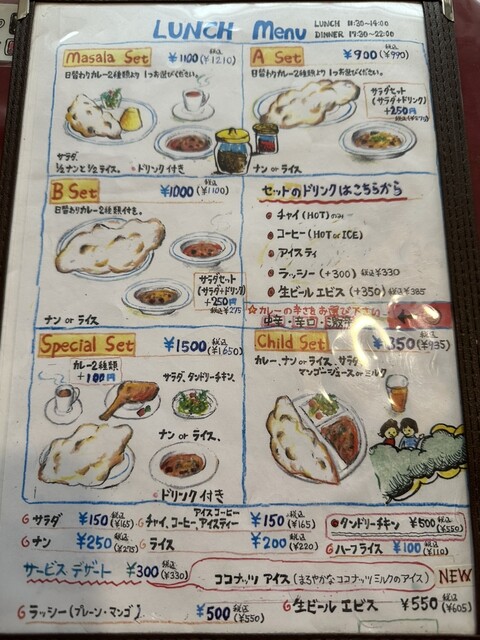 LUNCH Menu
LUNCH 11:30~14:00
DINNER 17:30~22:00
Masala Set ¥1100(税込¥1210)
日替わりカレー2種類より1つお選びください。
サラダ
1/2ナンと1/2ライス。
・ドリンク付き
A Set ¥900(税込¥990)
日替わりカレー2種類より1つお選びください。
サラダセット
(サラダ+ドリンク)
+250円
ナン or ライス
B Set ¥1000(税込¥1100)
日替わりカレー2種類付き。
サラダセット
(サラダ+ドリンク)
+250円
税込¥275
ナン or ライス
セットのドリンクはこちらから
チャイ(HOT)のみ
コーヒー(HOT or ICE)
アイスティ
ラッシー(+300) 税込¥330
生ビールエビス(+350) 税込¥385
☆カレーの辛さをお選び下さい
中辛・辛口・
Special Set ¥1500(税込¥1650)
カレー2種類
+100円
サラダ、タンドリーチキン、
ナン or ライス、
・ドリンク付き
Child Set 350(税込¥935)
カレー、ナン or ライス、サラダ
マンゴージュース or ミルク
サラダ ¥150(税込¥165)
チャイ、コーヒー、アイスコーヒー アイスティー ¥150(税込¥165)
タンドリーチキン ¥500(税込¥550)
ナン ¥250(税込¥275)
ライス ¥200(税込¥220)
ハーフライス ¥100(税込¥110)
サービスデザート ¥300(税込¥330)
ココナッツアイス(まろやかなココナッツミルクのアイス) NEW
ラッシー(プレーン・マンゴ) ¥500(税込¥550)
生ビールエビス ¥550(税込¥605)